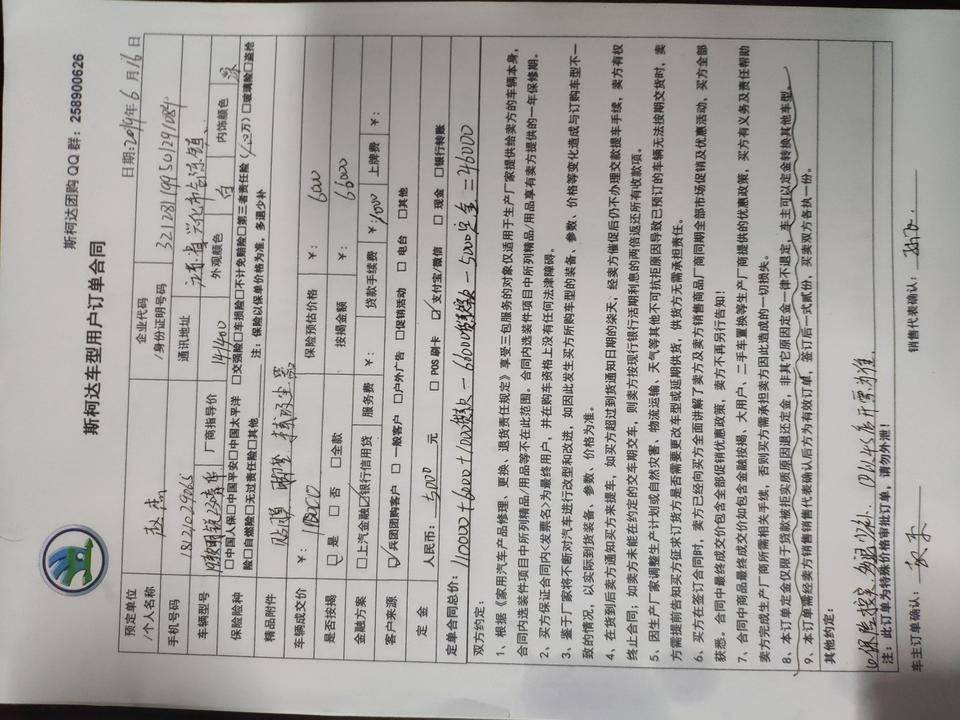 斯柯达团购 QQ 群：258900626
斯柯达车型用户订单合同
日期:2019年6月16日
预定单位
/个人名称
企业代码
/身份证明号码
手机号码
通讯地址
车辆型号
厂商指导价 141400
外观颜色 白
内饰颜色
保险险种
□中国人保□中国平安□中国太平洋 □交强险□车损险□不计免赔险□第三者责任险（100万）□玻璃险□盗抢
险□自燃险□无过责任险□其他
注：保险以保单价格为准，多退少补
精品附件
贴膜 脚垫
车辆成交价
￥：110000
保险预估价格
￥： 6000
是否按揭
□ 是 □ 否 □全款
按揭金额
￥： 66000
金融方案
□上汽金融□银行信用贷
服务费 ￥：
贷款手续费 ￥：1000
上牌费 ￥：
客户来源
□兵团购客户 □ 一般客户 □户外广告 □促销活动 □ 电台 □其他
定 金
人民币： 5000 元
□ POS 刷卡 ☑支付宝/微信 □ 现金 □银行转账
定单合同总价：110000+6000+1000 -66000 -5000定金=46000
双方约定：
1、根据《家用汽车产品修理、更换、退货责任规定》享受三包服务的对象仅适用于生产厂家提供给卖方的车辆本身，
合同内选装件项目中所列精品/用品等不在此范围。合同内选装件项目中所列精品/用品享有卖方提供的一年保修期。
2、买方保证合同内<发票名>为最终用户，并在购车资格上没有任何法律障碍。
3、鉴于厂家将不断对汽车进行改型和改进，如因此发生买方所购车型的装备、参数、价格等变化造成与订购车型不一
致的情况，以实际到货装备、参数、价格为准。
4、在货到后卖方通知买方来提车，如买方超过到货通知日期的柒天，经卖方催促后仍不办理交款提车手续，卖方有权
终止合同；如卖方未能在约定的交车期交车，则卖方按现行银行活期利息的两倍返还所有收款项。
5、因生产厂家调整生产计划或自然灾害、物流运输、天气等其他不可抗拒原因导致已预订的车辆无法按期交货时，卖
方需提前告知买方征求订货方是否需要更改车型或延期供货，供货方无需承担责任。
6、买方在签订合同时，卖方已经向买方全面讲解了卖方及卖方销售商品厂商同期全部市场促销及优惠活动，买方全部
获悉。合同中最终成交价包含全部促销优惠政策，卖方不再另行告知！
7、合同中商品最终成交价如包含金融按揭、大用户、二手车置换等生产厂商提供的优惠政策，买方有义务及责任帮助
卖方完成生产厂商所需相关手续，否则买方需承担卖方因此造成的一切损失。
8、本订单定金仅限于贷款被拒实质原因退还定金，非其它原因定金一律不退定，车主可以定金转换其他车型。
9、本订单需经卖方销售代表确认后方为有效订单，签订后一式贰份，买卖双方各执一份。
其他约定：
注：此订单为特殊价格审批订单，请勿外泄！
车主订单确认：
销售代表确认：